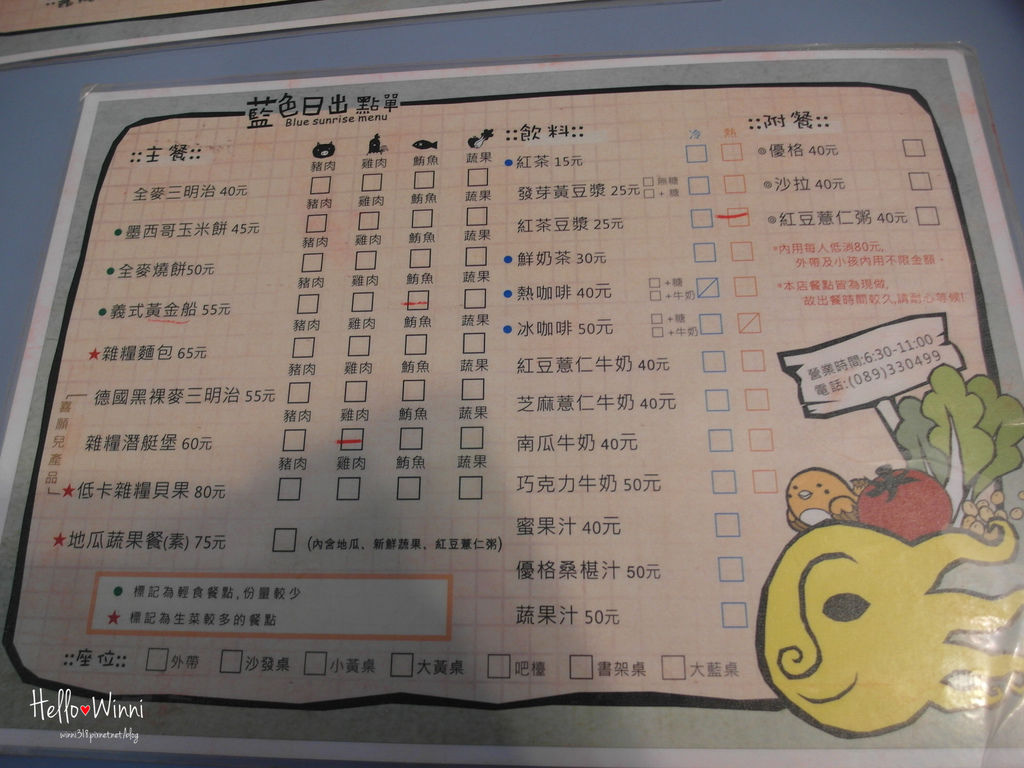 藍色日出 點單
Blue sunrise menu
::主餐::
豬肉 雞肉 鮪魚 蔬果
全麥三明治 40元
豬肉 雞肉 鮪魚 蔬果
●墨西哥玉米餅 45元
豬肉 雞肉 鮪魚 蔬果
●全麥燒餅50元
豬肉 雞肉 鮪魚 蔬果
●義式黃金船 55元
豬肉 雞肉 鮪魚 蔬果
★雜糧麵包 65元
豬肉 雞肉 鮪魚 蔬果
德國黑裸麥三明治 55元
豬肉 雞肉 鮪魚 蔬果
雜糧潛艇堡 60元
豬肉 雞肉 鮪魚 蔬果
★低卡雜糧貝果 80元
喜願兒產品
★地瓜蔬果餐(素) 75元
(內含地瓜、新鮮蔬果、紅豆薏仁粥)
● 標記為輕食餐點,份量較少
★ 標記為生菜較多的餐點
::飲料::
冷 熱
●紅茶 15元
發芽黃豆漿 25元 無糖 +糖
紅茶豆漿 25元
●鮮奶茶 30元
●熱咖啡 40元 +糖 +牛奶
●冰咖啡 50元 +糖 +牛奶
紅豆薏仁牛奶 40元
芝麻薏仁牛奶 40元
南瓜牛奶 40元
巧克力牛奶 50元
蜜果汁 40元
優格桑椹汁 50元
蔬果汁 50元
::附餐::
◎優格 40元
◎沙拉 40元
◎紅豆薏仁粥 40元
*內用每人低消80元,
外帶及小孩內用不限金額。
*本店餐點皆為現做,
故出餐時間較久,請耐心等候!
營業時間:6:30-11:00
電話:(089)330499
::座位:: 外帶 沙發桌 小黃桌 大黃桌 吧檯 書架桌 大藍桌
Hello♥Winni
winni318.pixnet.net/blog